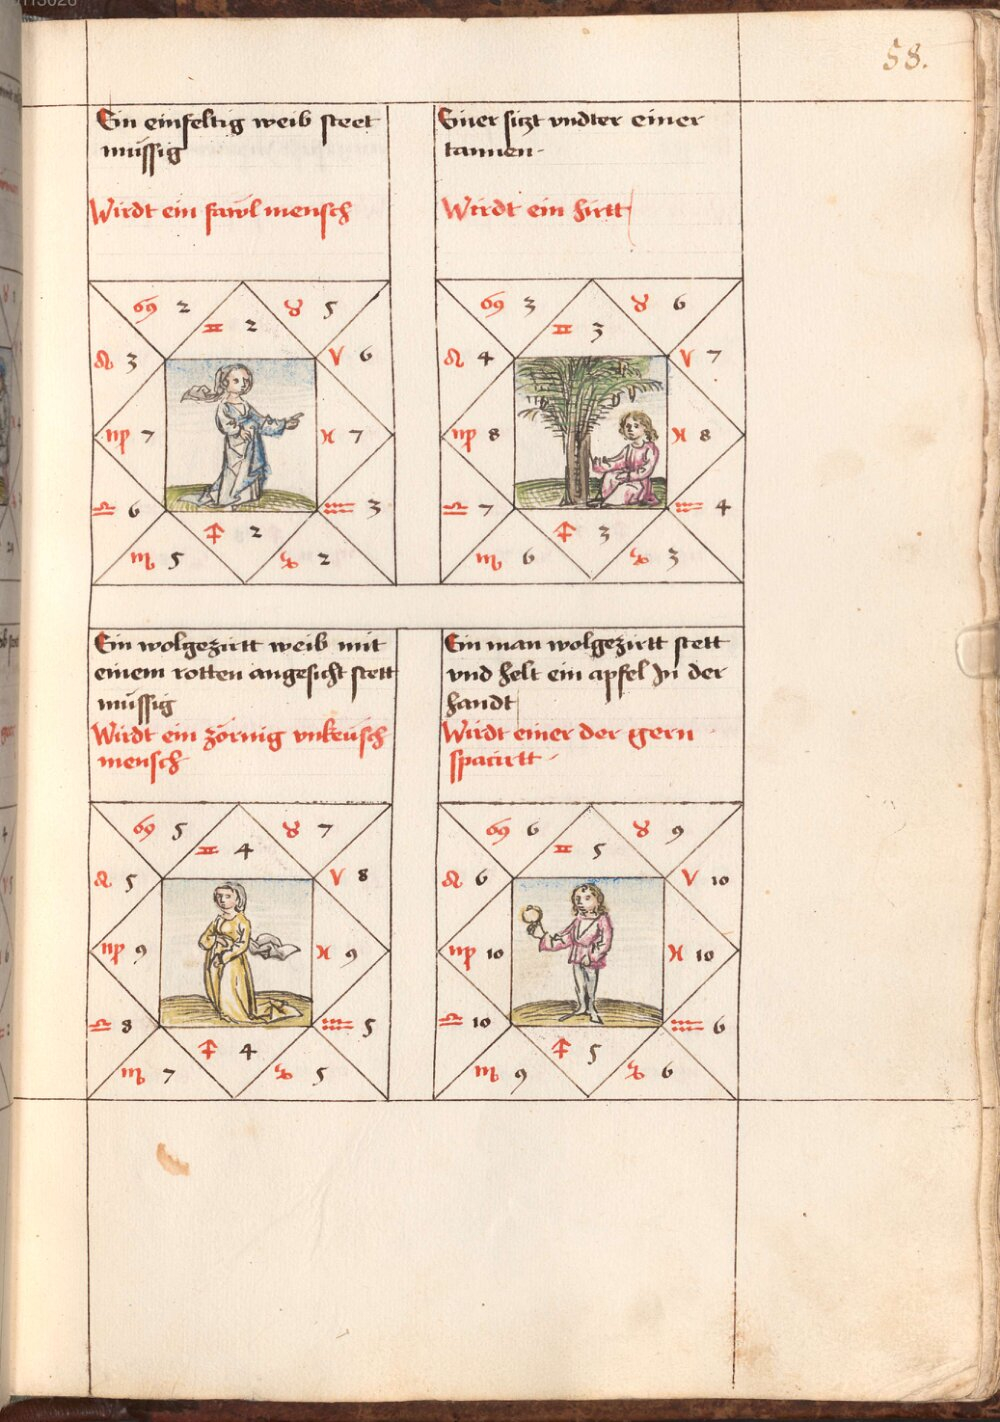 58.
Ein einfeltig weib steet
müssig
Wirdt ein fawl mensch
♋ 2
♊ 2
♉ 5
♌ 3
♈ 6
♍ 7
♓ 7
♎ 6
♒ 3
♏ 5
♐ 2
♑ 2
Einer sitzt vndter einer
tannen
Wirdt ein hirtt
♋ 3
♊ 3
♉ 6
♌ 4
♈ 7
♍ 8
♓ 8
♎ 7
♒ 4
♏ 6
♐ 3
♑ 3
Ein wolgezirtt weib mit
einem rotten angesicht stett
müssig
Wirdt ein zörnig vnkeüsch
mensch
♋ 5
♊ 4
♉ 7
♌ 5
♈ 8
♍ 9
♓ 9
♎ 8
♒ 5
♏ 7
♐ 4
♑ 5
Ein man wolgezirtt stett
vnd helt ein apfel Jn der
handt
Wirdt einer der gern
spacirtt
♋ 6
♊ 5
♉ 9
♌ 6
♈ 10
♍ 10
♓ 10
♎ 10
♒ 6
♏ 9
♐ 5
♑ 6